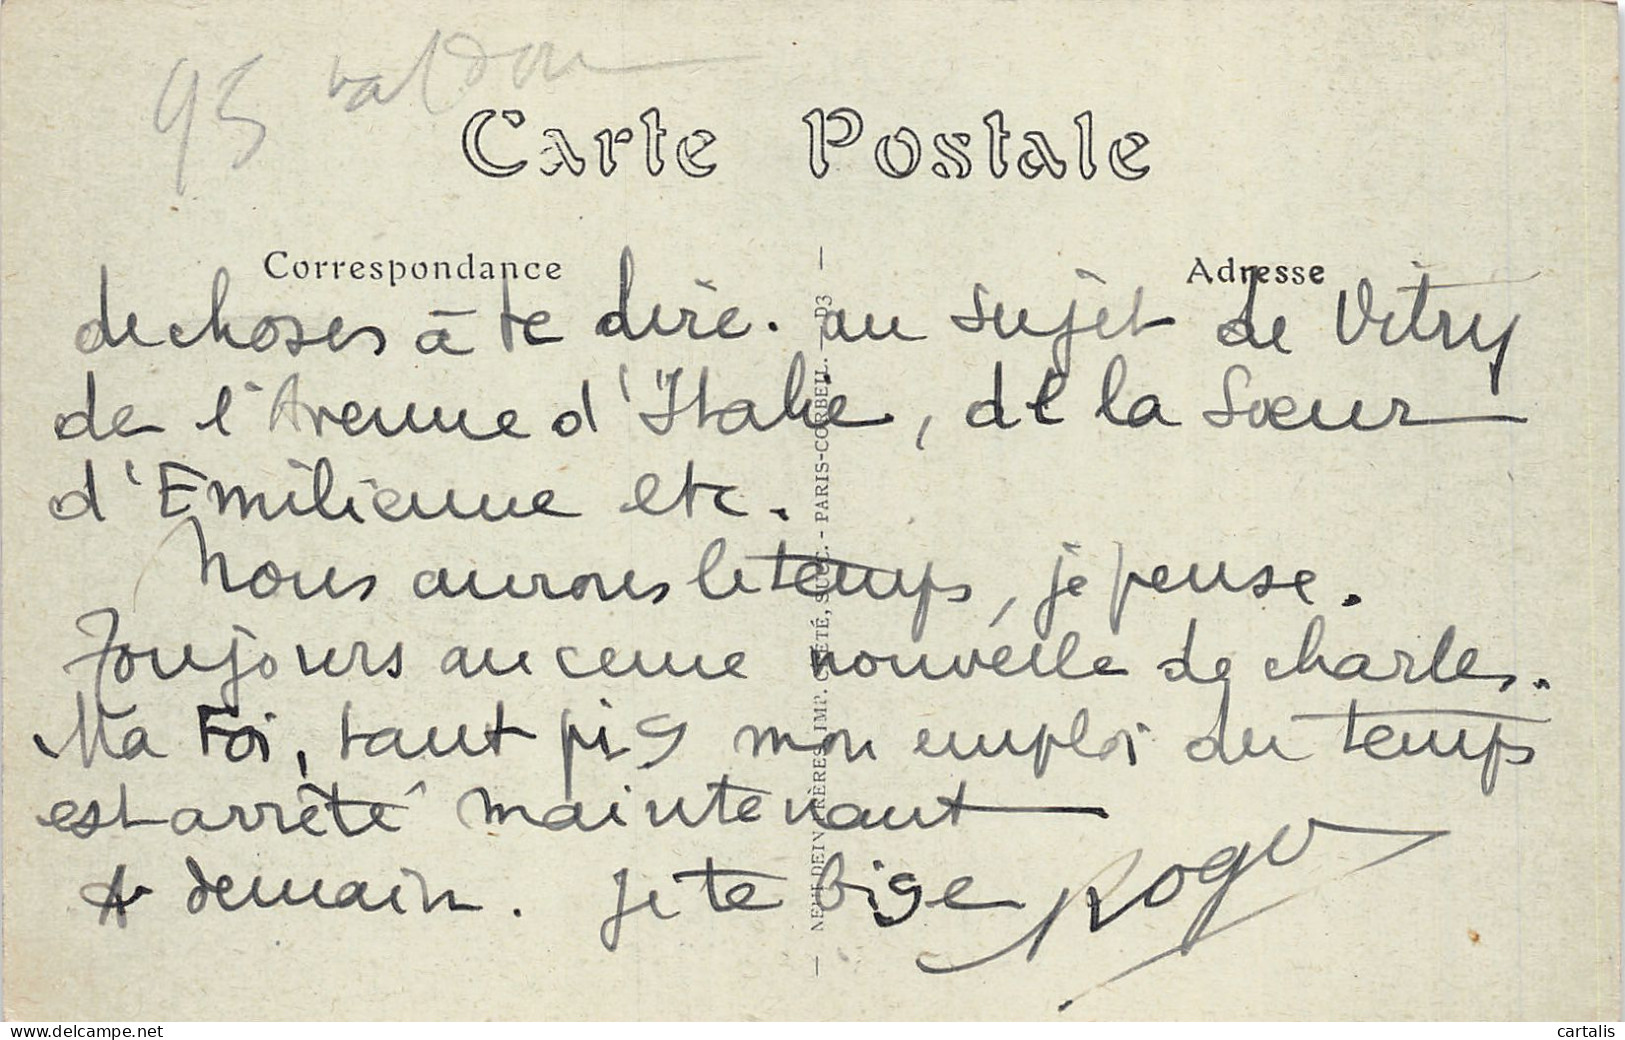 95 val d'oi
Carte Postale
Correspondance
Adresse
de choses à te dire. au sujet de Vitry
de l'Avenue d'Italie, de la Soeur
d'Emilienne etc.
Nous aurons le temps, je pense.
Toujours aucune nouvelle de charles.
Ma Foi, tant pis mon emploi du temps
est arrêté maintenant
A demain. Je te bise Roger
— NEURDEIN FRÈRES, IMP. CRÉTÉ, SUCC. - PARIS-CORBEIL. — D3 —
cartalis